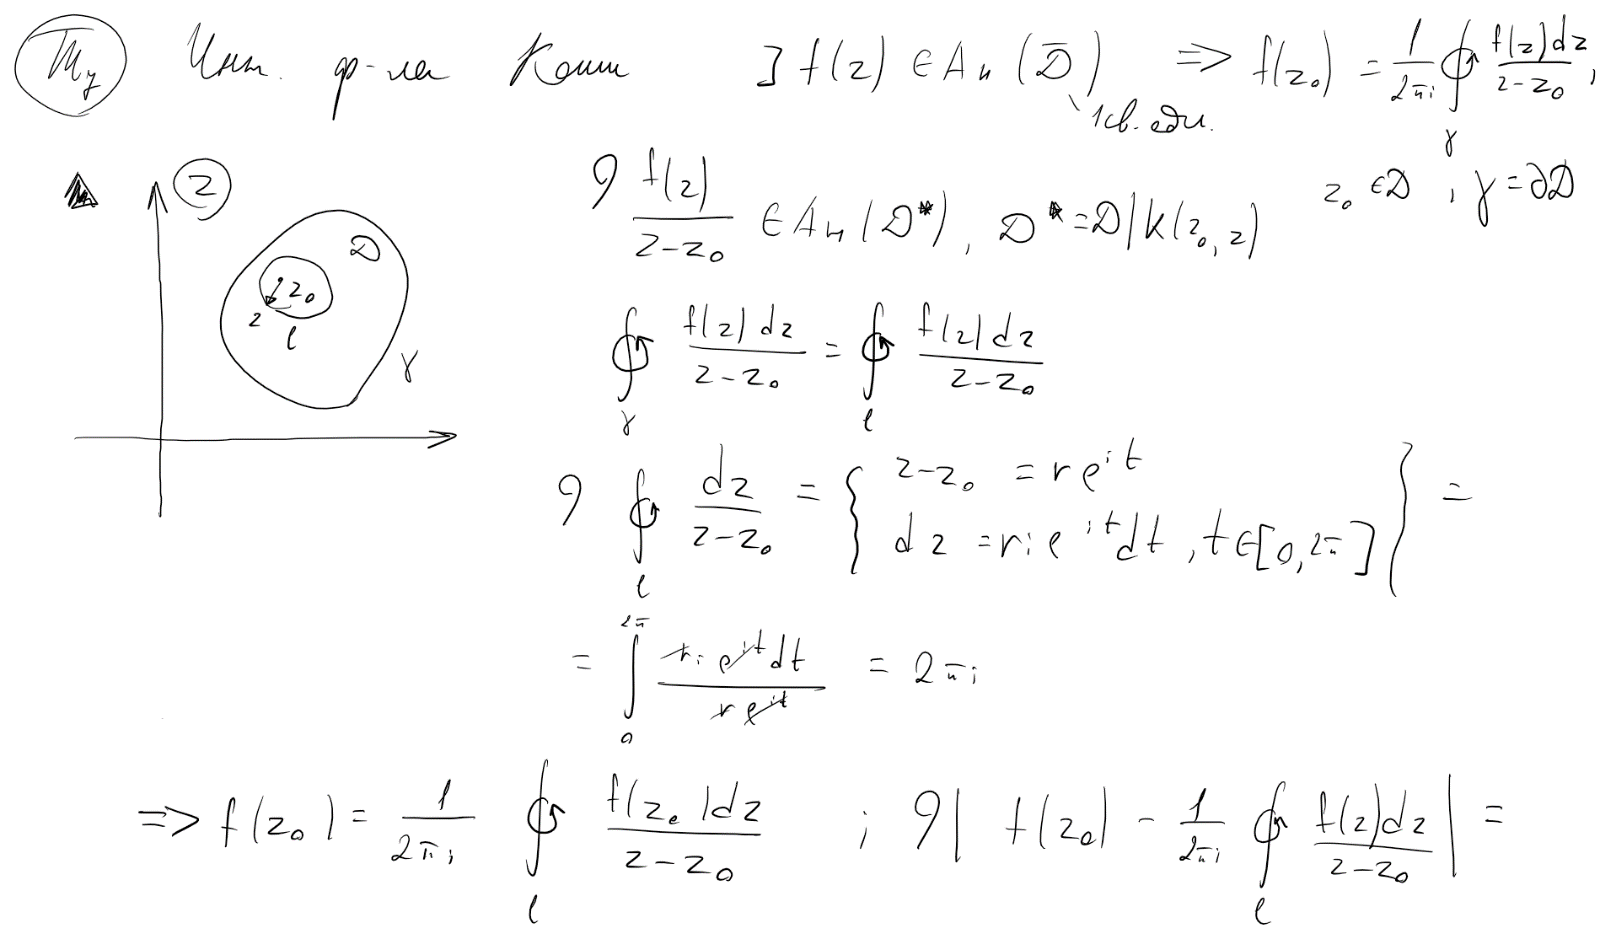 Тh у Инт. ф-ла Коши ] f(z) ∈ Ан (D̄) ⇒ f(z₀) = 1/(2πi) ∮_γ f(z)dz/(z-z₀),
1св. обл.
z₀ ∈ D, γ = ∂D
z
D
z₀
r
l
γ
9 f(z)/(z-z₀) ∈ Ан (D*), D* = D|K(z₀, r)
∮_γ f(z)dz/(z-z₀) = ∮_l f(z)dz/(z-z₀)
9 ∮_l dz/(z-z₀) = { z-z₀ = re^{it}
dz = rie^{it}dt, t∈[0, 2π] } =
= ∫_0^{2π} rie^{it}dt/(re^{it}) = 2πi
⇒ f(z₀) = 1/(2πi) ∮_l f(z₀)dz/(z-z₀) ; 9| f(z₀) - 1/(2πi) ∮_l f(z)dz/(z-z₀) | =